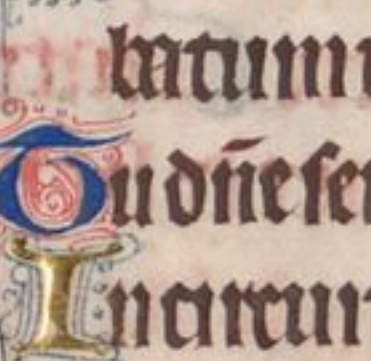 batum
Tu dñe ser
In circuit